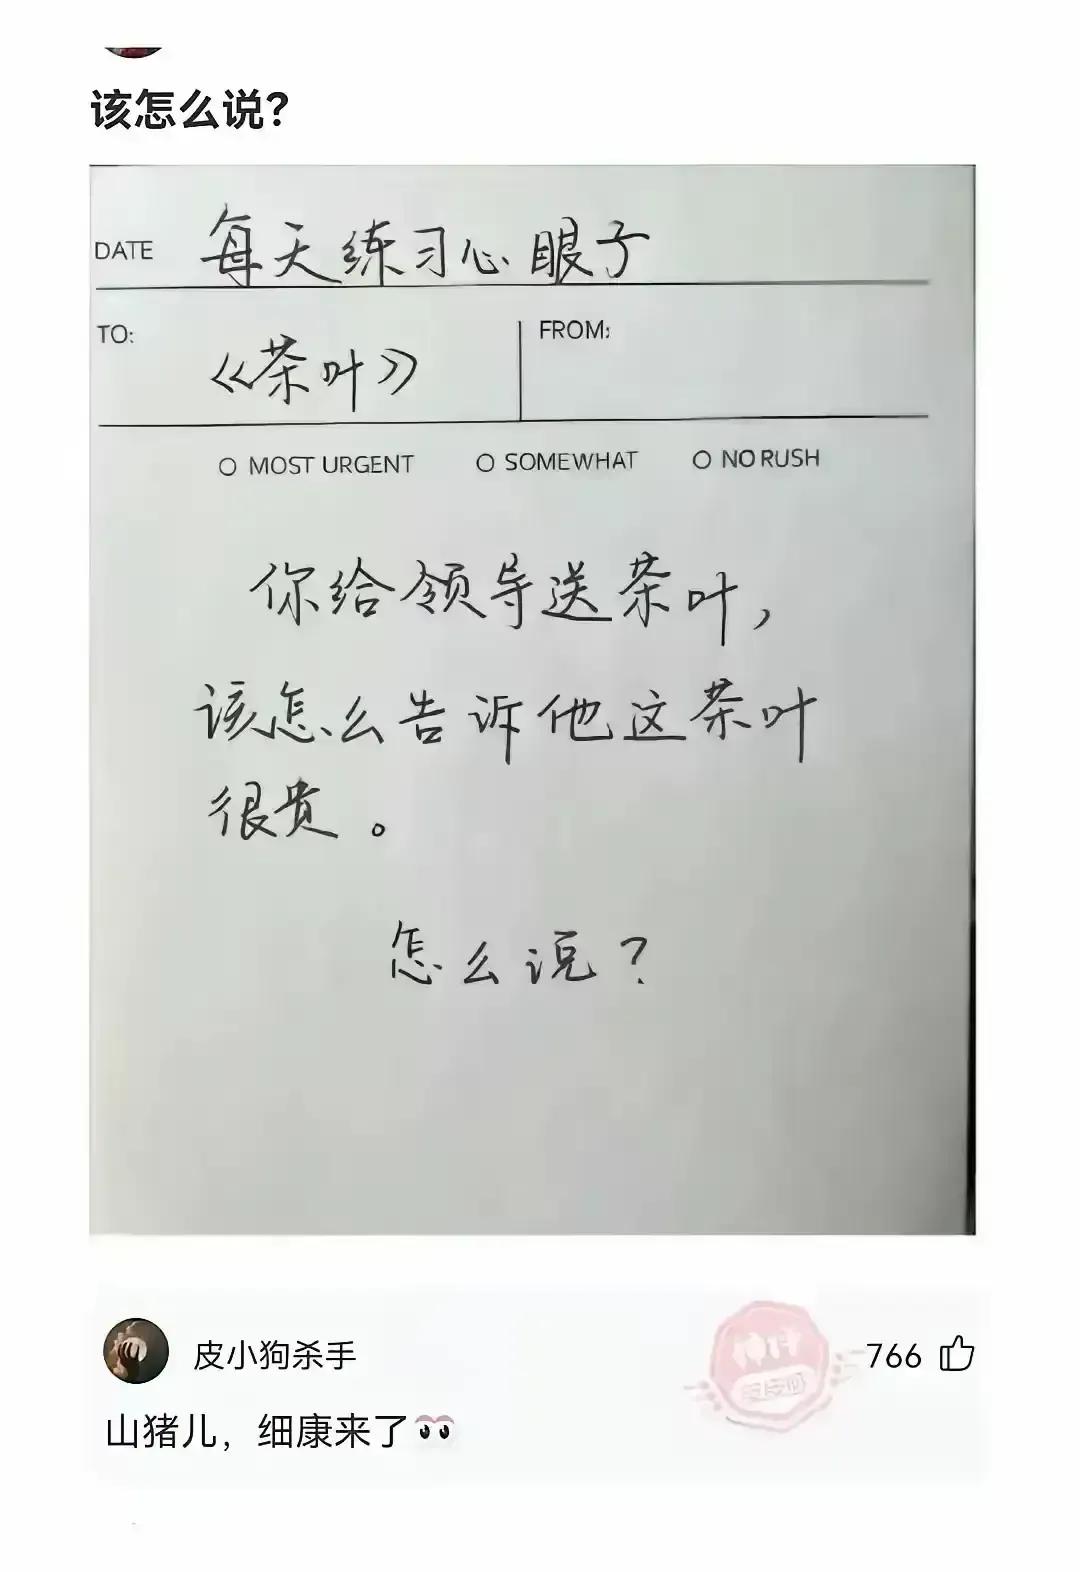 该怎么说？
DATE 每天练习心眼子
TO: 《茶叶》 FROM:
MOST URGENT SOMEWHAT NO RUSH
你给领导送茶叶，
该怎么告诉他这茶叶
很贵。
怎么说？
皮小狗杀手
神评
766
山猪儿，细康来了👀